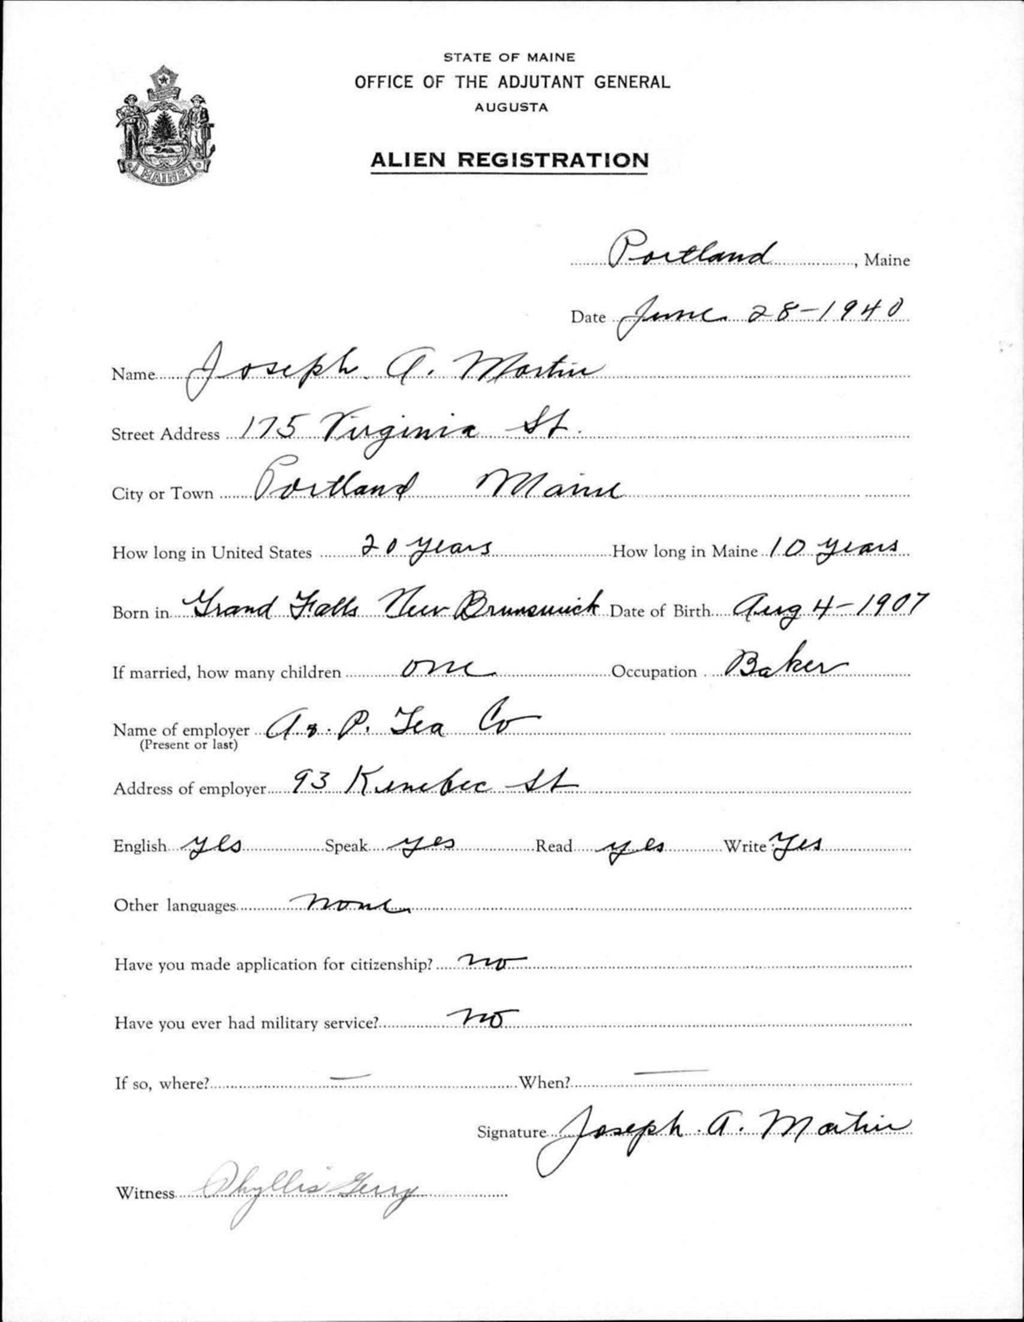 STATE OF MAINE
OFFICE OF THE ADJUTANT GENERAL
AUGUSTA
ALIEN REGISTRATION
MAINE
Portland, Maine
Date June 28-1940
Name Joseph A. Martin
Street Address 175 Virginia St.
City or Town Portland Maine
How long in United States 20 years How long in Maine 10 years
Born in Grand Falls New Brunswick Date of Birth Aug 4-1907
If married, how many children one Occupation Baker
Name of employer A & P. Tea Co
(Present or last)
Address of employer 93 Kenebec St
English yes Speak yes Read yes Write Yes
Other languages none
Have you made application for citizenship? no
Have you ever had military service? no
If so, where? — When? —
Signature Joseph A. Martin
Witness Phyllis Gerry